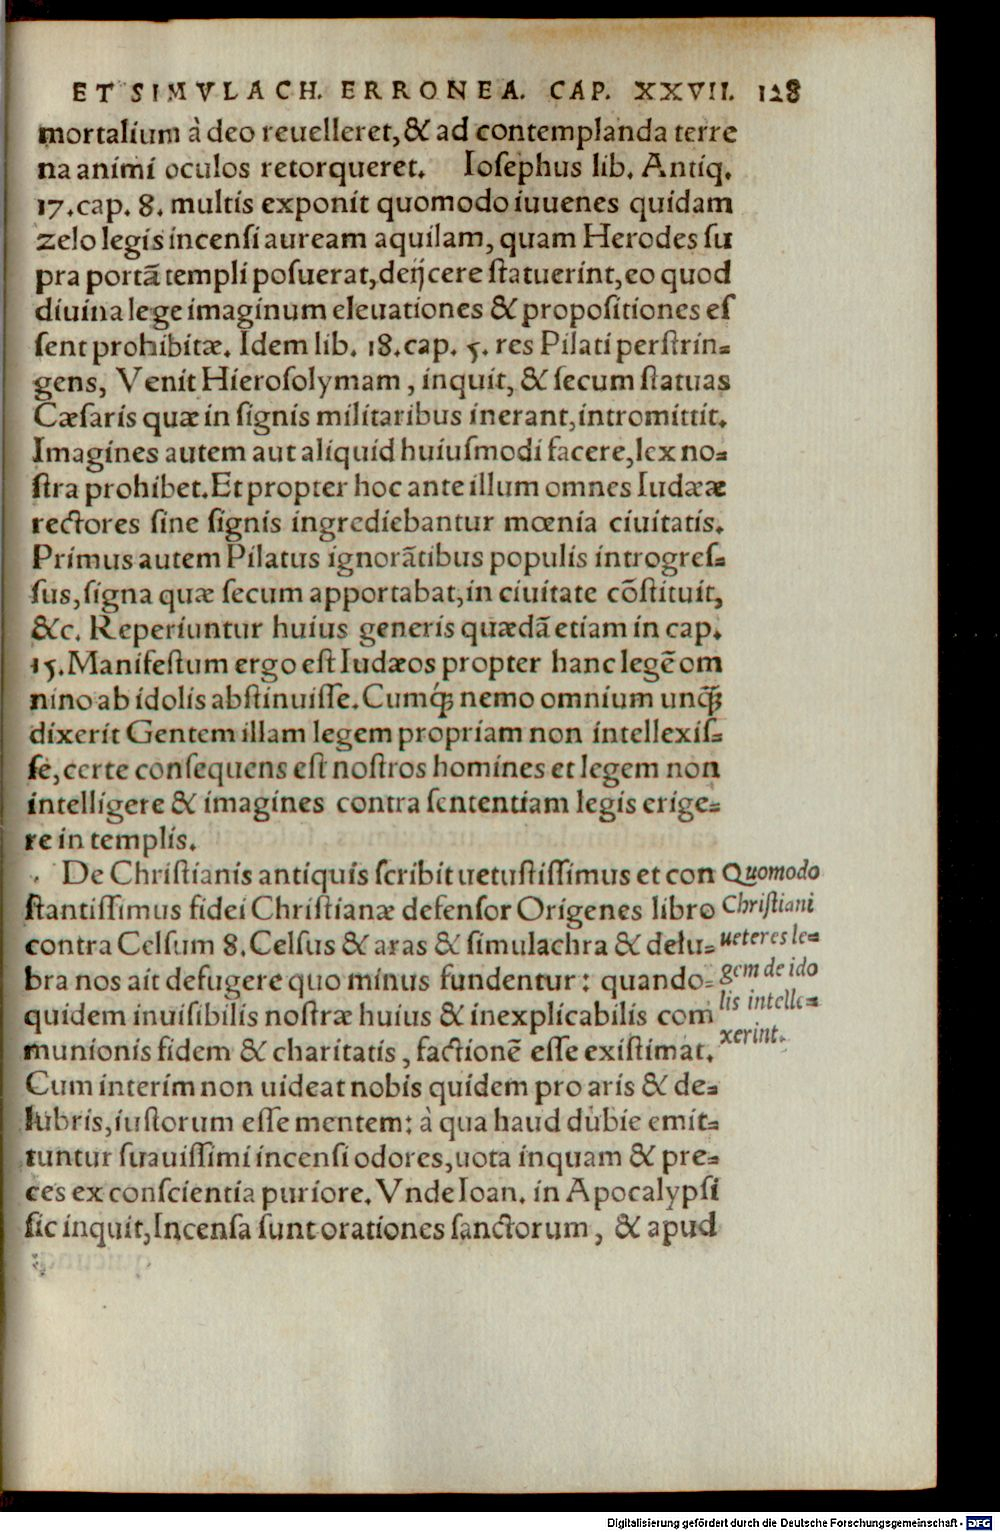 ET SIMVLACH. ERRONEA. CAP. XXVII. 128
mortalium à deo reuelleret, & ad contemplanda terre
na animi oculos retorqueret. Iosephus lib. Antiq.
17. cap. 8. multis exponit quomodo iuuenes quidam
zelo legis incensi auream aquilam, quam Herodes su
pra portã templi posuerat, deijcere statuerint, eo quod
diuina lege imaginum eleuationes & propositiones es
sent prohibitæ. Idem lib. 18. cap. 5. res Pilati perstrin-
gens, Venit Hierosolymam, inquit, & secum statuas
Cæsaris quæ in signis militaribus inerant, intromittit.
Imagines autem aut aliquid huiusmodi facere, lex no-
stra prohibet. Et propter hoc ante illum omnes Iudææ
rectores sine signis ingrediebantur mœnia ciuitatis.
Primus autem Pilatus ignorãtibus populis introgres-
sus, signa quæ secum apportabat, in ciuitate cõstituit,
&c. Reperiuntur huius generis quædã etiam in cap.
15. Manifestum ergo est Iudæos propter hanc legẽ om
nino ab idolis abstinuisse. Cumq́ꝫ nemo omnium unq̃ꝫ
dixerit Gentem illam legem propriam non intellexis-
se, certe consequens est nostros homines et legem non
intelligere & imagines contra sententiam legis erige-
re in templis.
De Christianis antiquis scribit uetustissimus et con
stantissimus fidei Christianæ defensor Origenes libro
contra Celsum 8. Celsus & aras & simulachra & delu-
bra nos ait defugere quo minus fundentur: quando-
quidem inuisibilis nostræ huius & inexplicabilis com
munionis fidem & charitatis, factionẽ esse existimat.
Cum interim non uideat nobis quidem pro aris & de-
lubris, iustorum esse mentem: à qua haud dubie emit-
tuntur suauissimi incensi odores, uota inquam & pre-
ces ex conscientia puriore. Vnde Ioan. in Apocalypsi
sic inquit, Incensa sunt orationes sanctorum, & apud
Quomodo
Christiani
ueteres le-
gem de ido
lis intelle-
xerint.
Digitalisierung gefördert durch die Deutsche Forschungsgemeinschaft - DFG